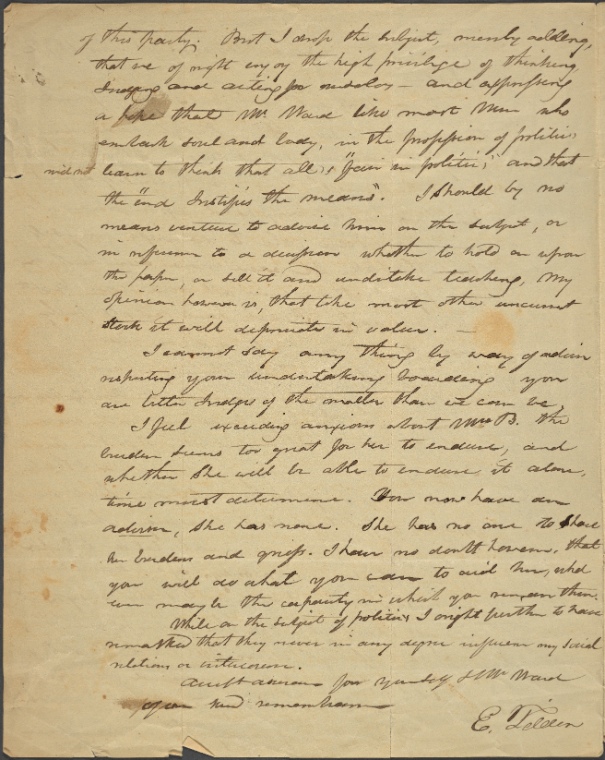 of this party. But I drop the subject, merely adding,
that we of right enjoy the high privilege of thinking
Judging and acting for ourselves — and expressing
a hope that Mr Ward like most men who
embark soul and body, in the profession of politics
will not learn to think that all is "fair in politics," and that
the "end Justifies the means". I should by no
means venture to advise him on the subject, or
in reference to a decision whether to hold on upon
the paper, or sell it and undertake teaching, My
opinion however is, that like most other uncurrent
stock it will depreciate in value. —
I cannot say any thing by way of advice
respecting your undertaking boarding you
are better Judges of the matter than we can be,
I feel exceeding anxious about Mrs B. the
burden seems too great for her to endure, and
whether she will be able to endure it alone,
time must determine. You now have an
adviser, she has none. She has no one to share
her burdens and griefs. I have no doubt however, that
you will do what you can to aid her,
may be the capacity in which you remain there.
While on the subject of politics I ought further to have
remarked that they never in any degree influence my social
relations or intercourse.
Accept assurance for yourself & Mr Ward
of our kind remembrance
E. Tilden